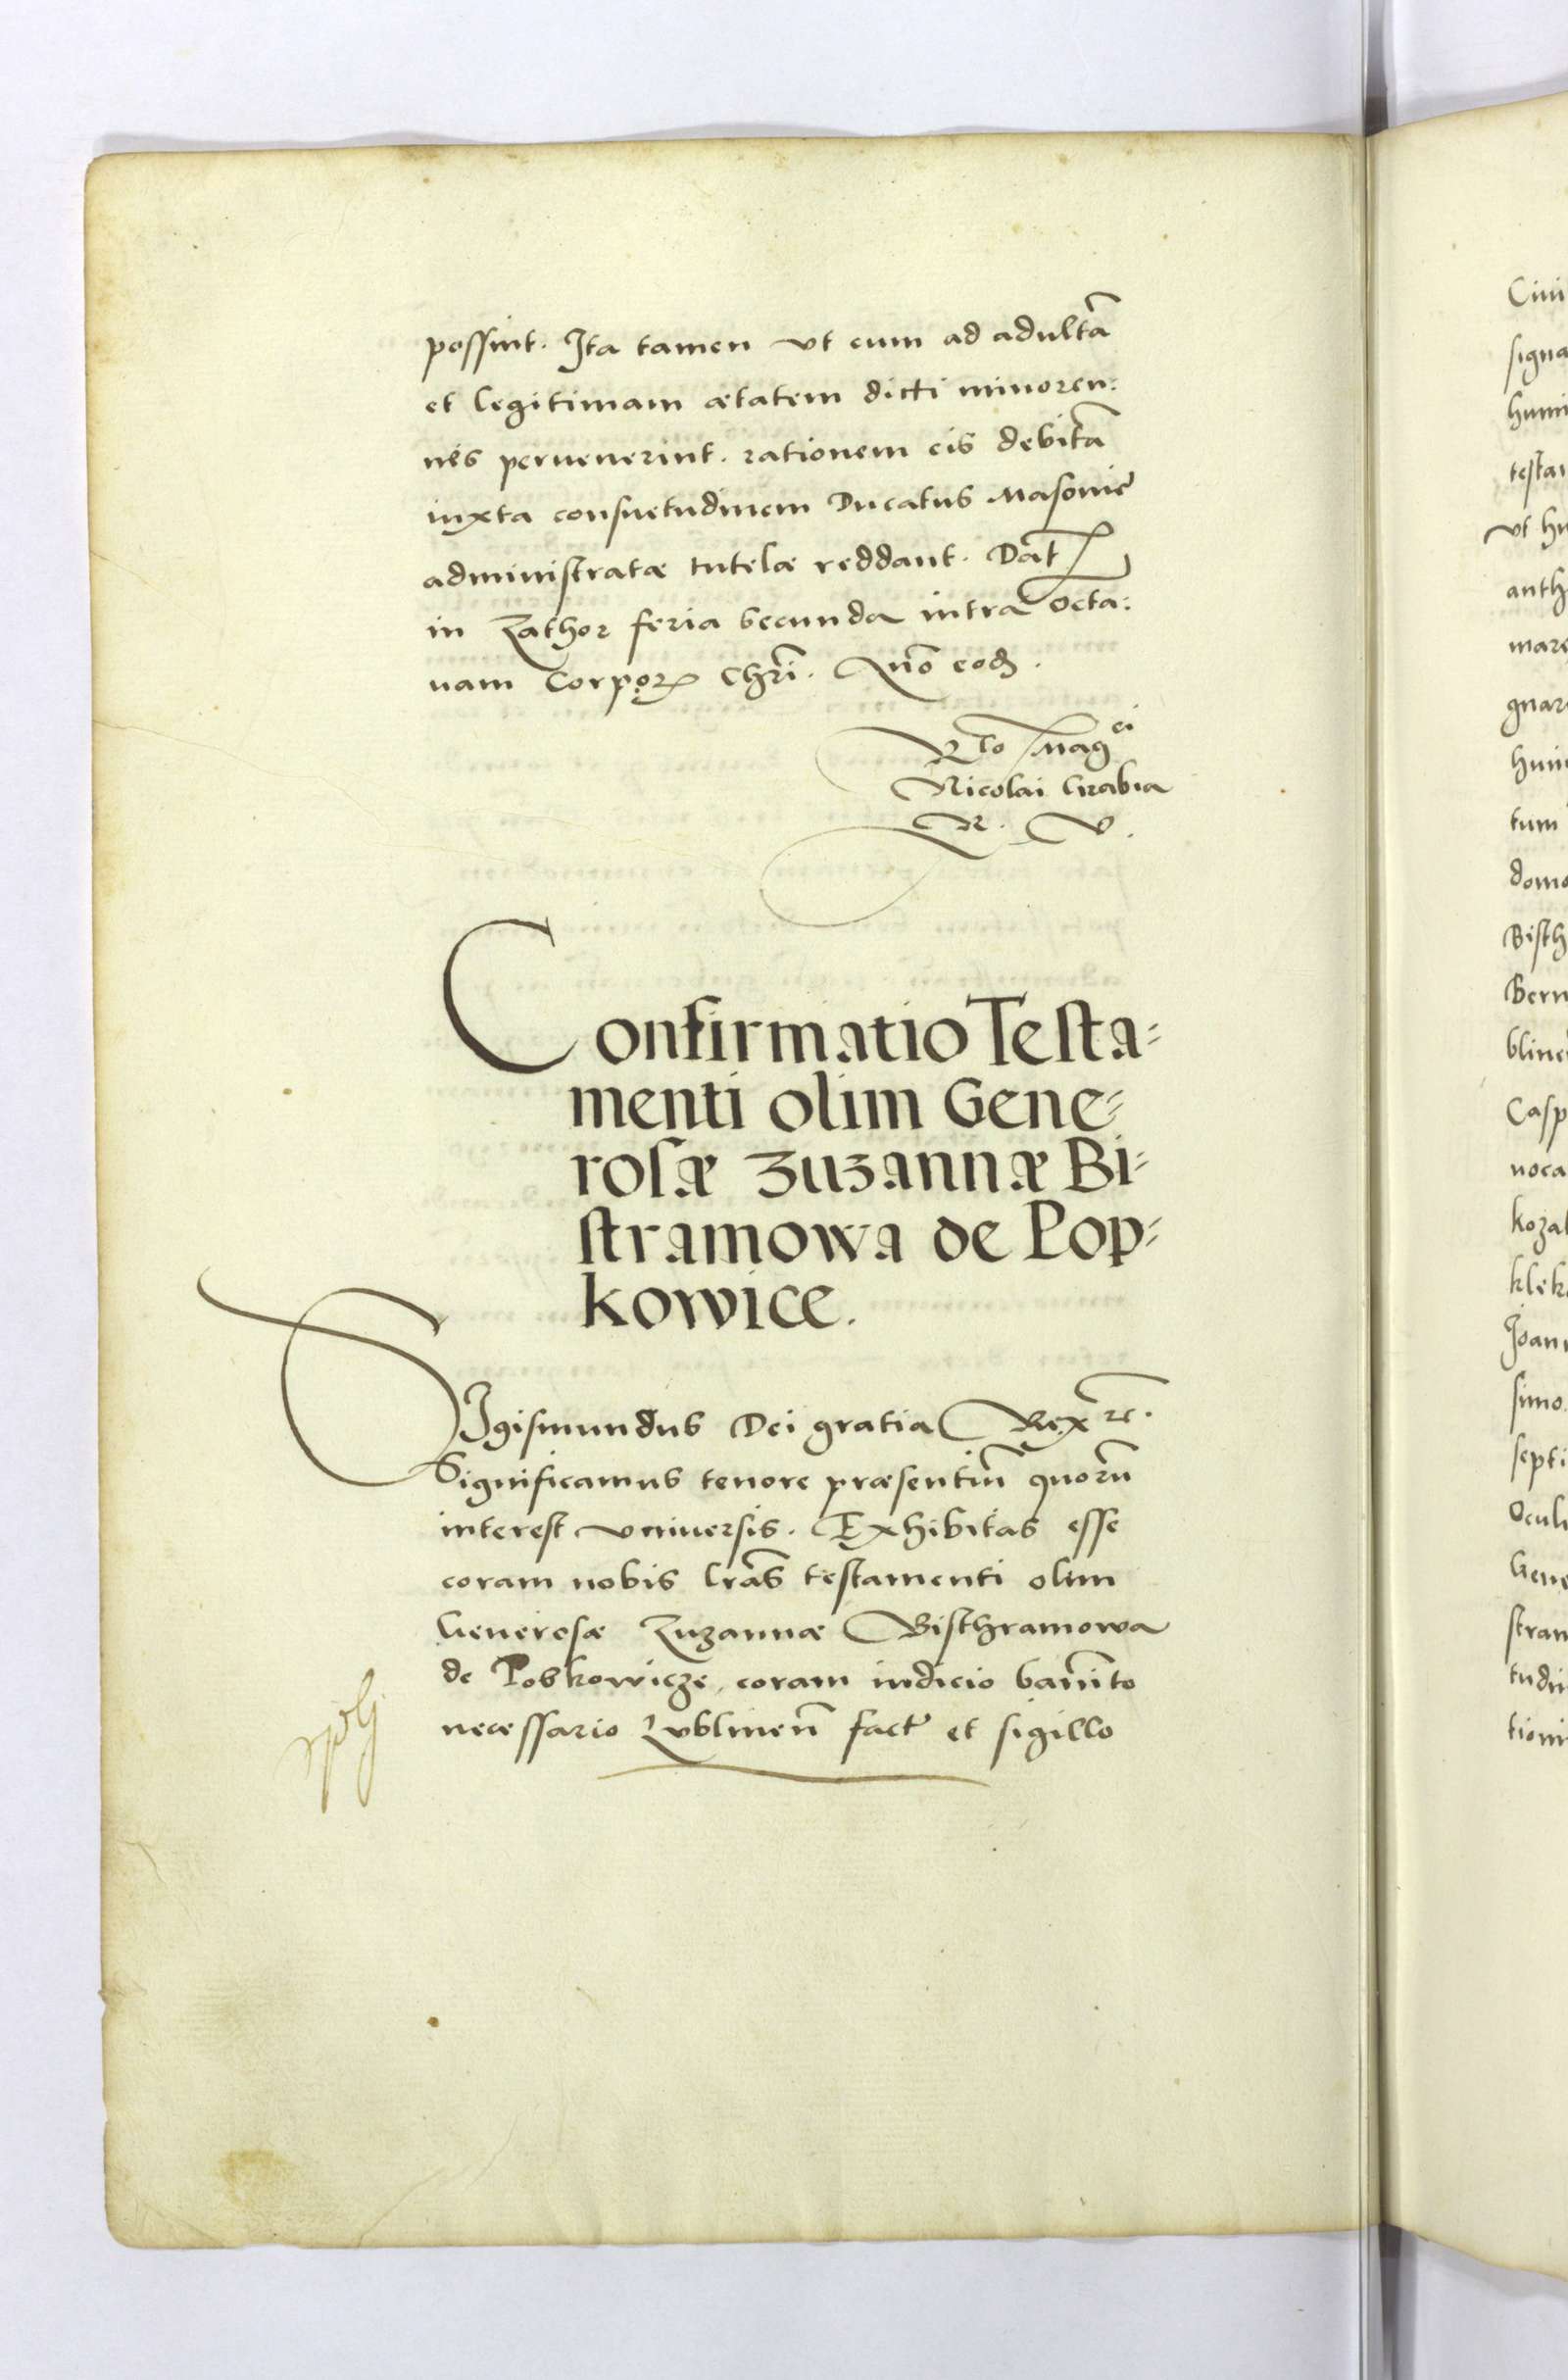 possint. Ita tamen vt cum ad adultā
et legitimam ætatem dicti minoren:
nes peruenerint. rationem eis debitā
iuxta consuetudinem Ducatus Masoniæ
administratæ tutelæ reddant. Dat
in Zathor feria secunda intra Octa:
uam Corporꝭ Chrī. Año eod.
Rlō Magci
Nicolai Grabia
R. V.
Confirmatio Testa=
menti olim Gene=
rosæ Zuzannæ Bi=
stramowa de Pop=
kowice.
SIgismundus Dei gratia Rex rc.
Significamus tenore præsentiū quorū
interest vniuersis. Exhibitas esse
coram nobis lrās testamenti olim
Generosæ Zuzannæ Bisthramowa
de Pobkowicze, coram iudicio bannito
necessario Lublineñ fact et sigillo
Ciui
signa
humi
testa
vt hu
anth
mare
gnar
huiu
tum
domo
Bisth
Bern
bline
Casp
uoca
koza
klek
Joan
simo
septi
Oculi
Gene
stram
tudin
tioni